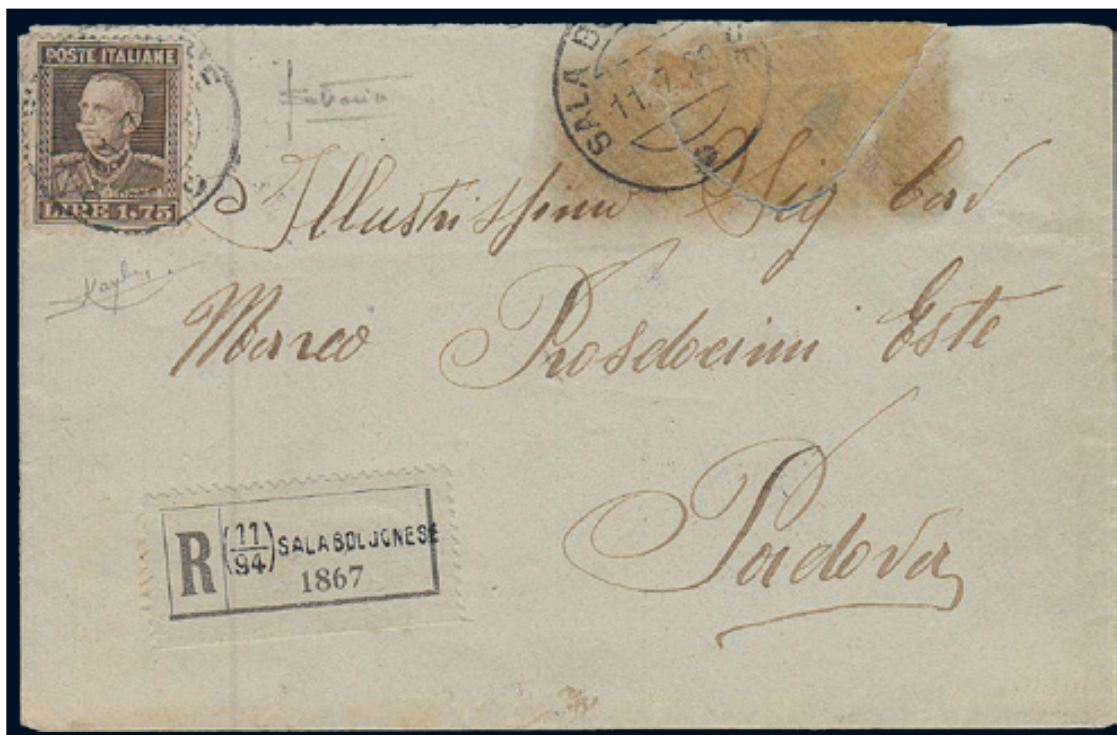 POSTE ITALIANE
LIRE 1.75
SALA B
11.7.
Illustrissimo Sig Cav
Marco Prosdocimi Este
Padova
R
11
94
SALA BOLOGNESE
1867